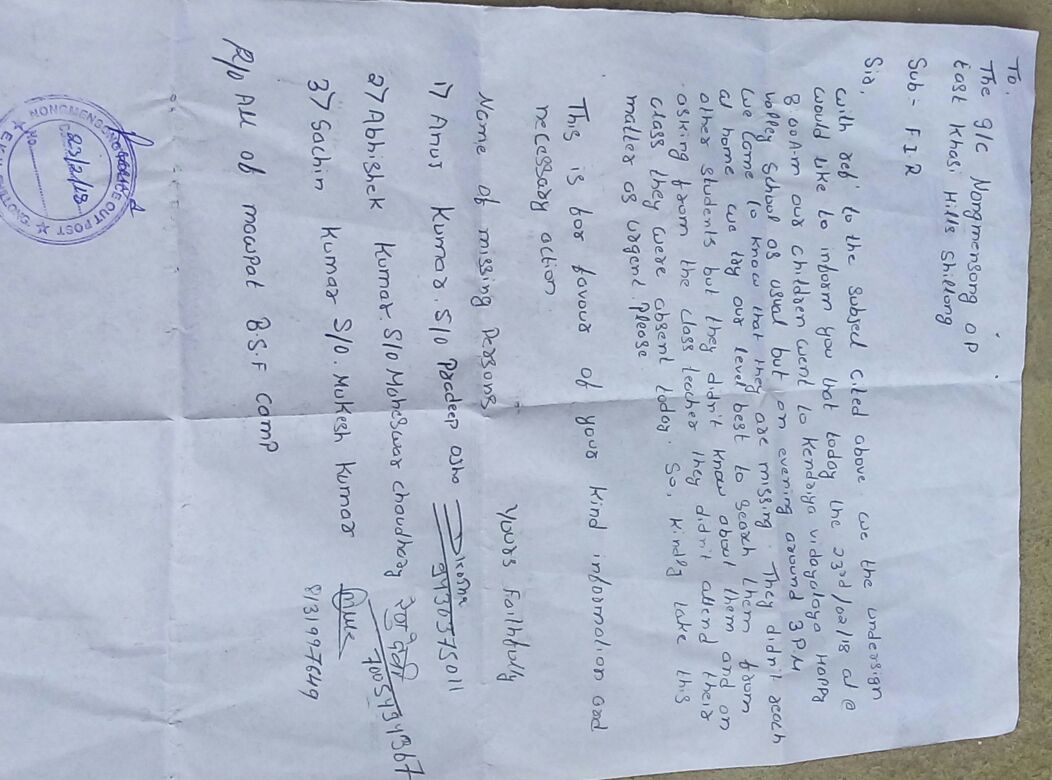 To.
The o/c Nongmensong O P
East Khasi Hills Shillong
Sub - F I R
Sir,
with ref' to the subject cited above we the undersign
would like to inform you that today the 23rd/02/18 at @
8:00 A.M our children went to Kendriya vidayalaya Happy
valley School as usual but on evening around 3 P M
we come to know that they are missing. They didn't reach
at home we try our level best to search them from
other students but they didn't know about them and on
asking from the class teacher they didn't attend their
class they were absent today. So, kindly take this
matter as urgent Please
This is for favour of your kind information and
necassary action
Yours Faithfully
Name of missing Persons
1) Anur Kumar. S/o Pradeep ojha 9413037 5011
2) Abhishek Kumar. S/o Maheswar choudhary 7005434367
3) Sachin Kumar S/o. Mukesh Kumar
8131997649
R/o All of mawpat B.S.F camp
NONGMENSONG OUT POST
23/2/18